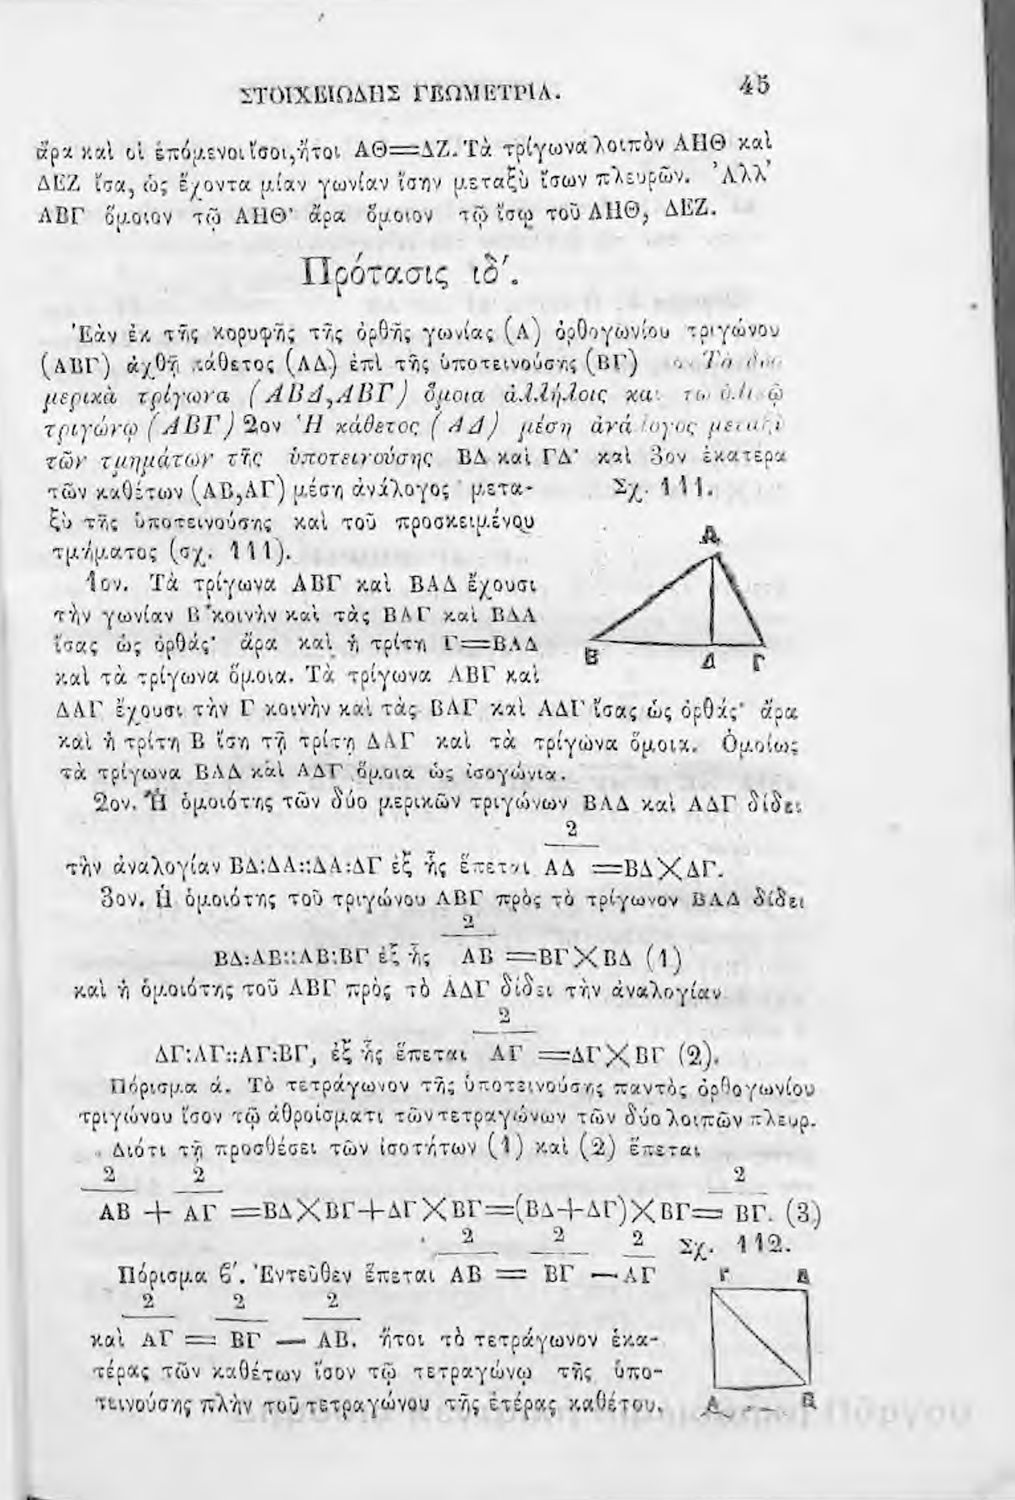 ΣΤΟΙΧΕΙΩΔΗΣ ΓΕΩΜΕΤΡΙΑ. 45
ἄρα καὶ οἱ ἑπόμενοι ἴσοι, ἤτοι ΑΘ=ΔΖ. Τὰ τρίγωνα λοιπὸν ΑΗΘ καὶ
ΔΕΖ ἴσα, ὡς ἔχοντα μίαν γωνίαν ἴσην μεταξὺ ἴσων πλευρῶν. Ἀλλ'
ΑΒΓ ὅμοιον τῷ ΑΗΘ· ἄρα ὅμοιον τῷ ἴσῳ τοῦ ΑΗΘ, ΔΕΖ.
Πρότασις ιδ'.
Ἐὰν ἐκ τῆς κορυφῆς τῆς ὀρθῆς γωνίας (Α) ὀρθογωνίου τριγώνου
(ΑΒΓ) ἀχθῇ κάθετος (ΑΔ) ἐπὶ τῆς ὑποτεινούσης (ΒΓ) Τὰ δύο
μερικὰ τρίγωνα (ΑΒΔ,ΑΒΓ) ὅμοια ἀλλήλοις καὶ τῷ ὅλῳ
τριγώνῳ (ΑΒΓ) 2ον Ἡ κάθετος (ΑΔ) μέση ἀνάλογος μεταξὺ
τῶν τμημάτων τῆς ὑποτεινούσης ΒΔ καὶ ΓΔ· καὶ 3ον ἑκατέρα
τῶν καθέτων (ΑΒ,ΑΓ) μέση ἀνάλογος μετα-
ξὺ τῆς ὑποτεινούσης καὶ τοῦ προσκειμένου
τμήματος (σχ. 111).
Σχ. 111.
Α
Β Δ Γ
1ον. Τὰ τρίγωνα ΑΒΓ καὶ ΒΑΔ ἔχουσι
τὴν γωνίαν Β κοινὴν καὶ τὰς ΒΑΓ καὶ ΒΔΑ
ἴσας ὡς ὀρθάς· ἄρα καὶ ἡ τρίτη Γ=ΒΑΔ
καὶ τὰ τρίγωνα ὅμοια. Τὰ τρίγωνα ΑΒΓ καὶ
ΔΑΓ ἔχουσι τὴν Γ κοινὴν καὶ τὰς ΒΑΓ καὶ ΑΔΓ ἴσας ὡς ὀρθάς· ἄρα
καὶ ἡ τρίτη Β ἴση τῇ τρίτῃ ΔΑΓ καὶ τὰ τρίγωνα ὅμοια. Ὁμοίως
τὰ τρίγωνα ΒΑΔ καὶ ΑΔΓ ὅμοια ὡς ἰσογώνια.
2ον. Ἡ ὁμοιότης τῶν δύο μερικῶν τριγώνων ΒΑΔ καὶ ΑΔΓ δίδει
2
τὴν ἀναλογίαν ΒΔ:ΔΑ::ΔΑ:ΔΓ ἐξ ἧς ἕπεται ΑΔ =ΒΔ×ΔΓ.
3ον. Ἡ ὁμοιότης τοῦ τριγώνου ΑΒΓ πρὸς τὸ τρίγωνον ΒΑΔ δίδει
2
ΒΔ:ΑΒ::ΑΒ:ΒΓ ἐξ ἧς ΑΒ =ΒΓ×ΒΔ (1)
καὶ ἡ ὁμοιότης τοῦ ΑΒΓ πρὸς τὸ ΑΔΓ δίδει τὴν ἀναλογίαν
2
ΔΓ:ΑΓ::ΑΓ:ΒΓ, ἐξ ἧς ἕπεται ΑΓ =ΔΓ×ΒΓ (2).
Πόρισμα ά. Τὸ τετράγωνον τῆς ὑποτεινούσης παντὸς ὀρθογωνίου
τριγώνου ἴσον τῷ ἀθροίσματι τῶν τετραγώνων τῶν δύο λοιπῶν πλευρ.
Διότι τῇ προσθέσει τῶν ἰσοτήτων (1) καὶ (2) ἕπεται
2 2 2
ΑΒ + ΑΓ =ΒΔ×ΒΓ+ΔΓ×ΒΓ=(ΒΔ+ΔΓ)×ΒΓ= ΒΓ. (3)
2 2 2
Πόρισμα ϐ'. Ἐντεῦθεν ἕπεται ΑΒ = ΒΓ — ΑΓ
2 2 2
καὶ ΑΓ = ΒΓ — ΑΒ. ἤτοι τὸ τετράγωνον ἑκα-
τέρας τῶν καθέτων ἴσον τῷ τετραγώνῳ τῆς ὑπο-
τεινούσης πλὴν τοῦ τετραγώνου τῆς ἑτέρας καθέτου.
Σχ. 112.
Γ Δ
Α Β